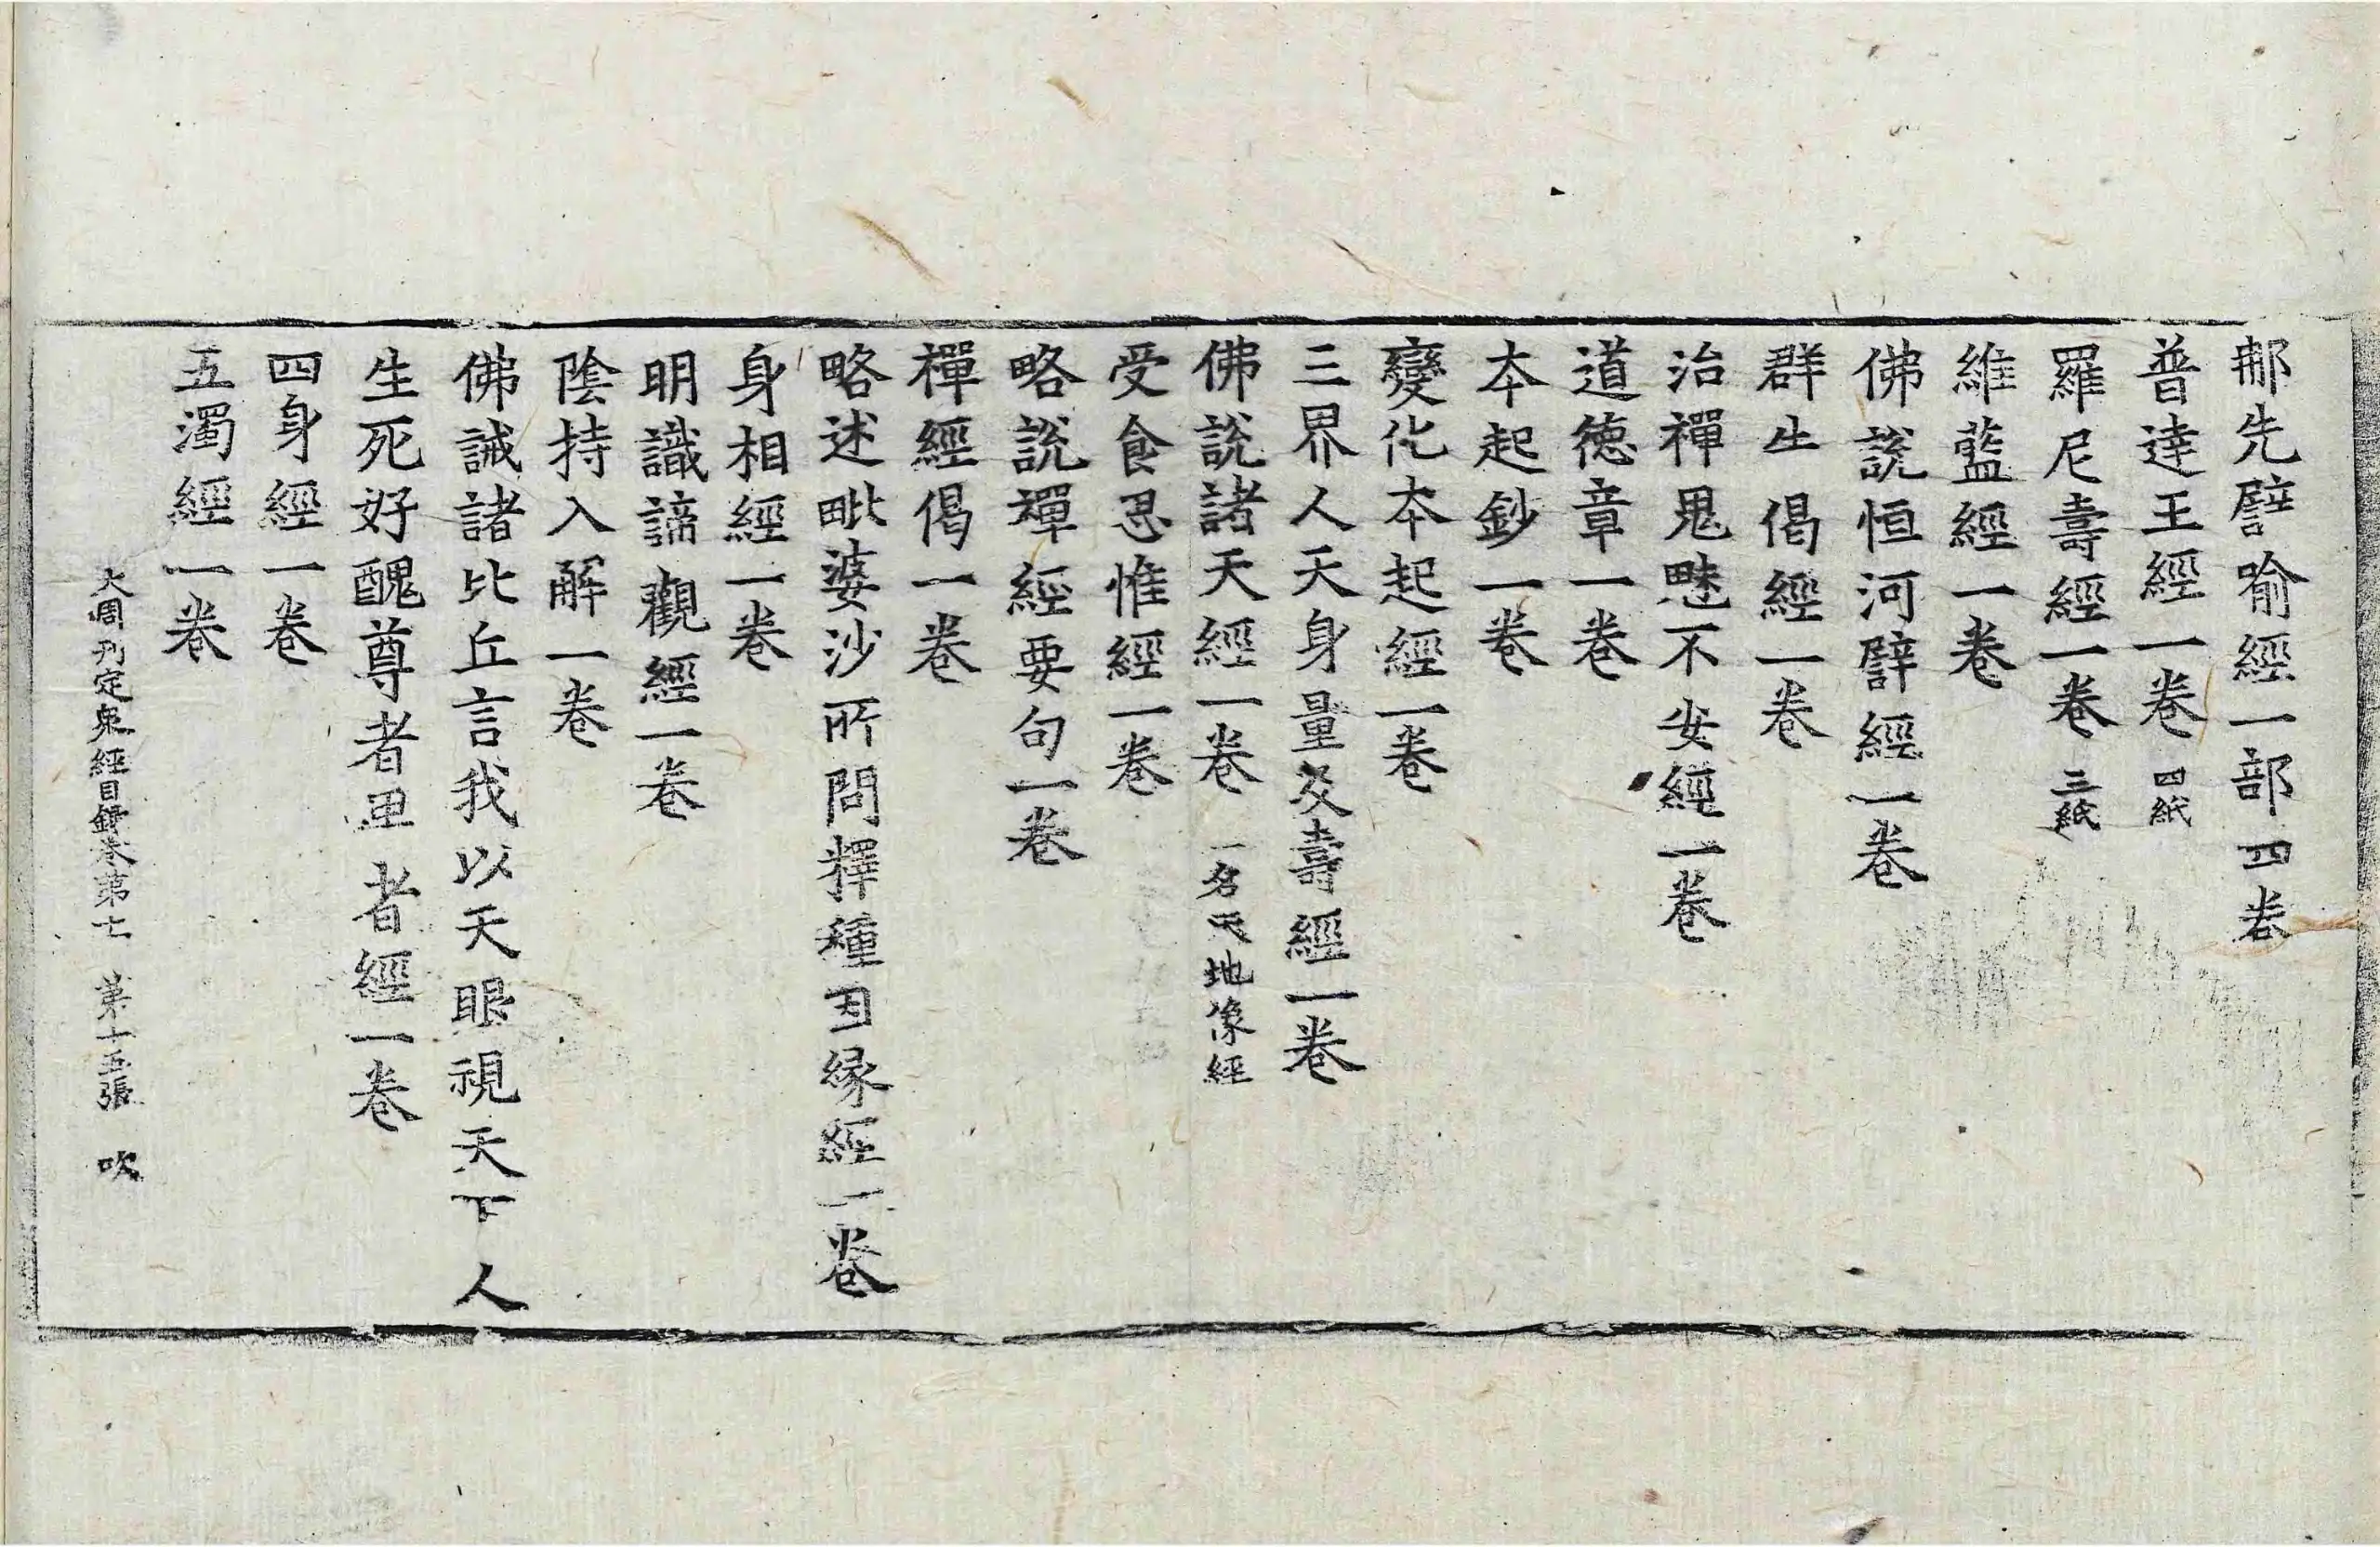 那先譬喻經一部四卷
普達王經一卷 四紙
羅尼壽經一卷 三紙
維藍經一卷
佛說恒河譬經一卷
群生偈經一卷
治禪鬼魅不安經一卷
道德章一卷
本起鈔一卷
變化本起經一卷
三界人天身量及壽經一卷
佛說諸天經一卷 一名天地像經
受食思惟經一卷
略說禪經要句一卷
禪經偈一卷
略述毗婆沙所問釋種因緣經一卷
身相經一卷
明識諦觀經一卷
陰持入解一卷
佛誡諸比丘言我以天眼視天下人
生死好醜尊者卑者經一卷
四身經一卷
五濁經一卷
大周刊定衆經目錄卷第七 第十五張 吹